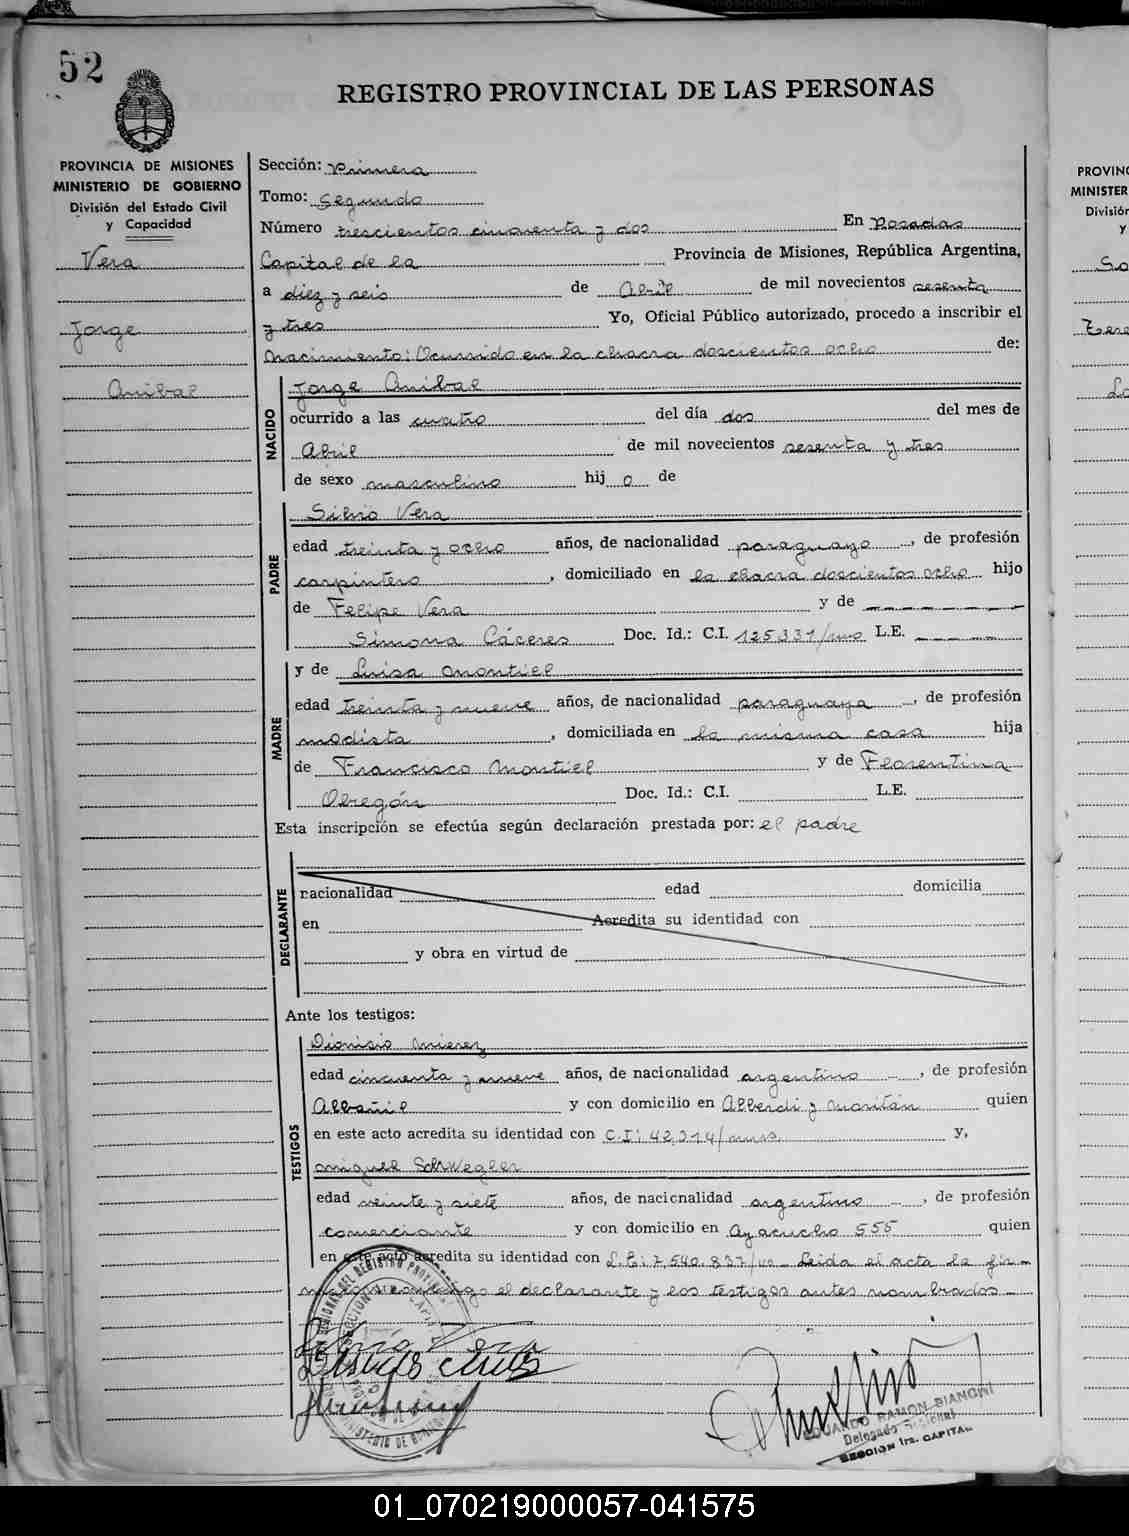 52
REGISTRO PROVINCIAL DE LAS PERSONAS
PROVINCIA DE MISIONES
MINISTERIO DE GOBIERNO
División del Estado Civil
y Capacidad
Vera
Jorge
Anibal
Sección: Primera
Tomo: Segundo
Número trescientos cincuenta y dos En Posadas
Capital de la Provincia de Misiones, República Argentina,
a diez y seis de Abril de mil novecientos sesenta
y tres Yo, Oficial Público autorizado, procedo a inscribir el
nacimiento: Ocurrido en la chacra doscientos ocho de:
NACIDO
Jorge Anibal
ocurrido a las cuatro del día dos del mes de
Abril de mil novecientos sesenta y tres
de sexo masculino hij o de
PADRE
Silvio Vera
edad treinta y ocho años, de nacionalidad paraguayo, de profesión
carpintero, domiciliado en la chacra doscientos ocho hijo
de Felipe Vera y de
Simona Cáceres Doc. Id.: C.I. 125.331/ L.E.
MADRE
y de Luisa Montiel
edad treinta y nueve años, de nacionalidad paraguaya, de profesión
modista, domiciliada en la misma casa hija
de Francisco Montiel y de Florentina
Obregón Doc. Id.: C.I. L.E.
Esta inscripción se efectúa según declaración prestada por: el padre
DECLARANTE
nacionalidad edad domicilia
en Acredita su identidad con
y obra en virtud de
Ante los testigos:
TESTIGOS
Dionisio Mierez
edad cincuenta y nueve años, de nacionalidad argentino, de profesión
Albañil y con domicilio en Alberdi y quien
en este acto acredita su identidad con C.I: 42.314/ y,
Miguel Schwegler
edad veinte y siete años, de nacionalidad argentino, de profesión
comerciante y con domicilio en Ayacucho 555 quien
en este acto acredita su identidad con L.E: 7.540.837/ Leida el acta la fir-
el declarante y los testigos antes nombrados
EDUARDO RAMON BIANCHI
Delegado Regional
SECCION 1ra. CAPITAL
PROVINC
MINISTER
División
y
01_070219000057-041575